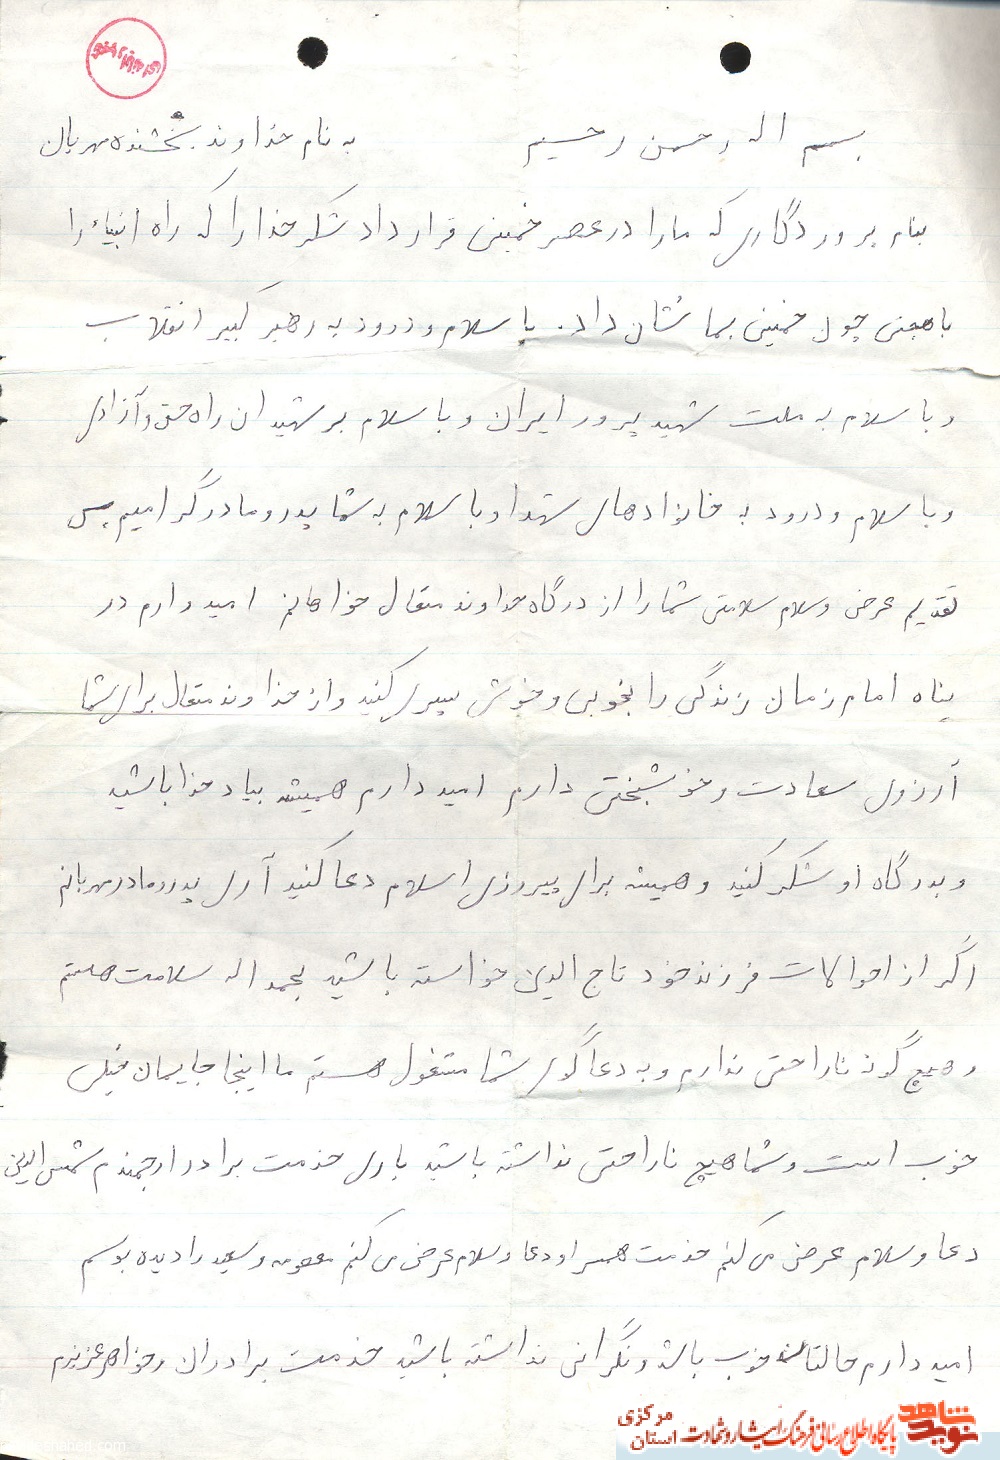 بسم اله رحمن رحیم به نام خداوند بخشنده مهربان
بنام پروردگاری که ما را در عصر خمینی قرار داد شکر خدا را که راه انبیاء را
با همچنی چون خمینی بما نشان داد. با سلام و درود به رهبر کبیر انقلاب
و با سلام به ملت شهید پرور ایران و با سلام بر شهیدان راه حق و آزادی
و با سلام و درود به خانوادهای شهدا و با سلام به شما پدر و مادر گرامیم پس
تقدیم عرض وسلام سلامتی شما را از درگاه خداوند متعال خواهانم امیدوارم در
پناه امام زمان زندگی را بخوبی و خوش سپری کنید و از خداوند متعال برای شما
آرزوی سعادت و خوشبختی دارم امید دارم همیشه بیاد خدا باشید
و بدرگاه او شکر کنید و همیشه برای پیروزی اسلام دعا کنید آری پدر و مادر مهربانم
اگر از احوالات فرزند خود تاج الدین خواسته باشید بحمد اله سلامت هستم
و هیچ گونه ناراحتی ندارم و به دعاگوی شما مشغول هستم ما اینجا جایمان خیلی
خوب است و شما هیچ ناراحتی نداشته باشید باری خدمت برادر ارجمندم شمس الدین
دعا و سلام عرض می کنم خدمت همسر او دعا و سلام عرض می کنم معصومه و سعید را دیده بوسم
امید دارم حالتان خوب باشد و نگرانی نداشته باشید خدمت برادران و خواهر عزیزم
نوید شاهد
پایگاه اطلاع رسانی فرهنگ ایثار و شهادت
استان مرکزی